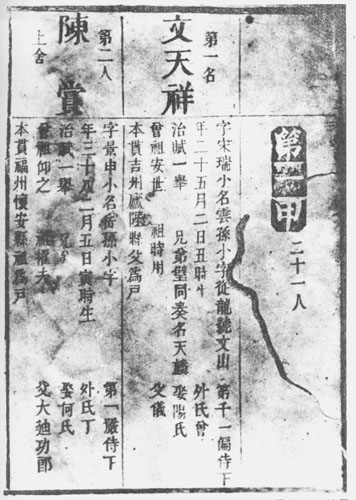 第一甲
二十一人
第一名
文天祥
字宋瑞小名雲孫小字從龍號文山 第千一 偏侍下
年二十五月二日丑時生 外氏曾
治賦一舉 兄弟璧同奏名天麟 娶陽氏
曾祖安世 祖時用 父儀
本貫吉州廬陵縣父爲戶
第二人
陳賞
上舍
字景申小名孫小字 第一 嚴侍下
年三十八二月五日寅時生 外氏丁
治賦一舉 兄 娶何氏
曾祖仰之 祖權夫 父大迪功郎
本貫福州懷安縣祖爲戶